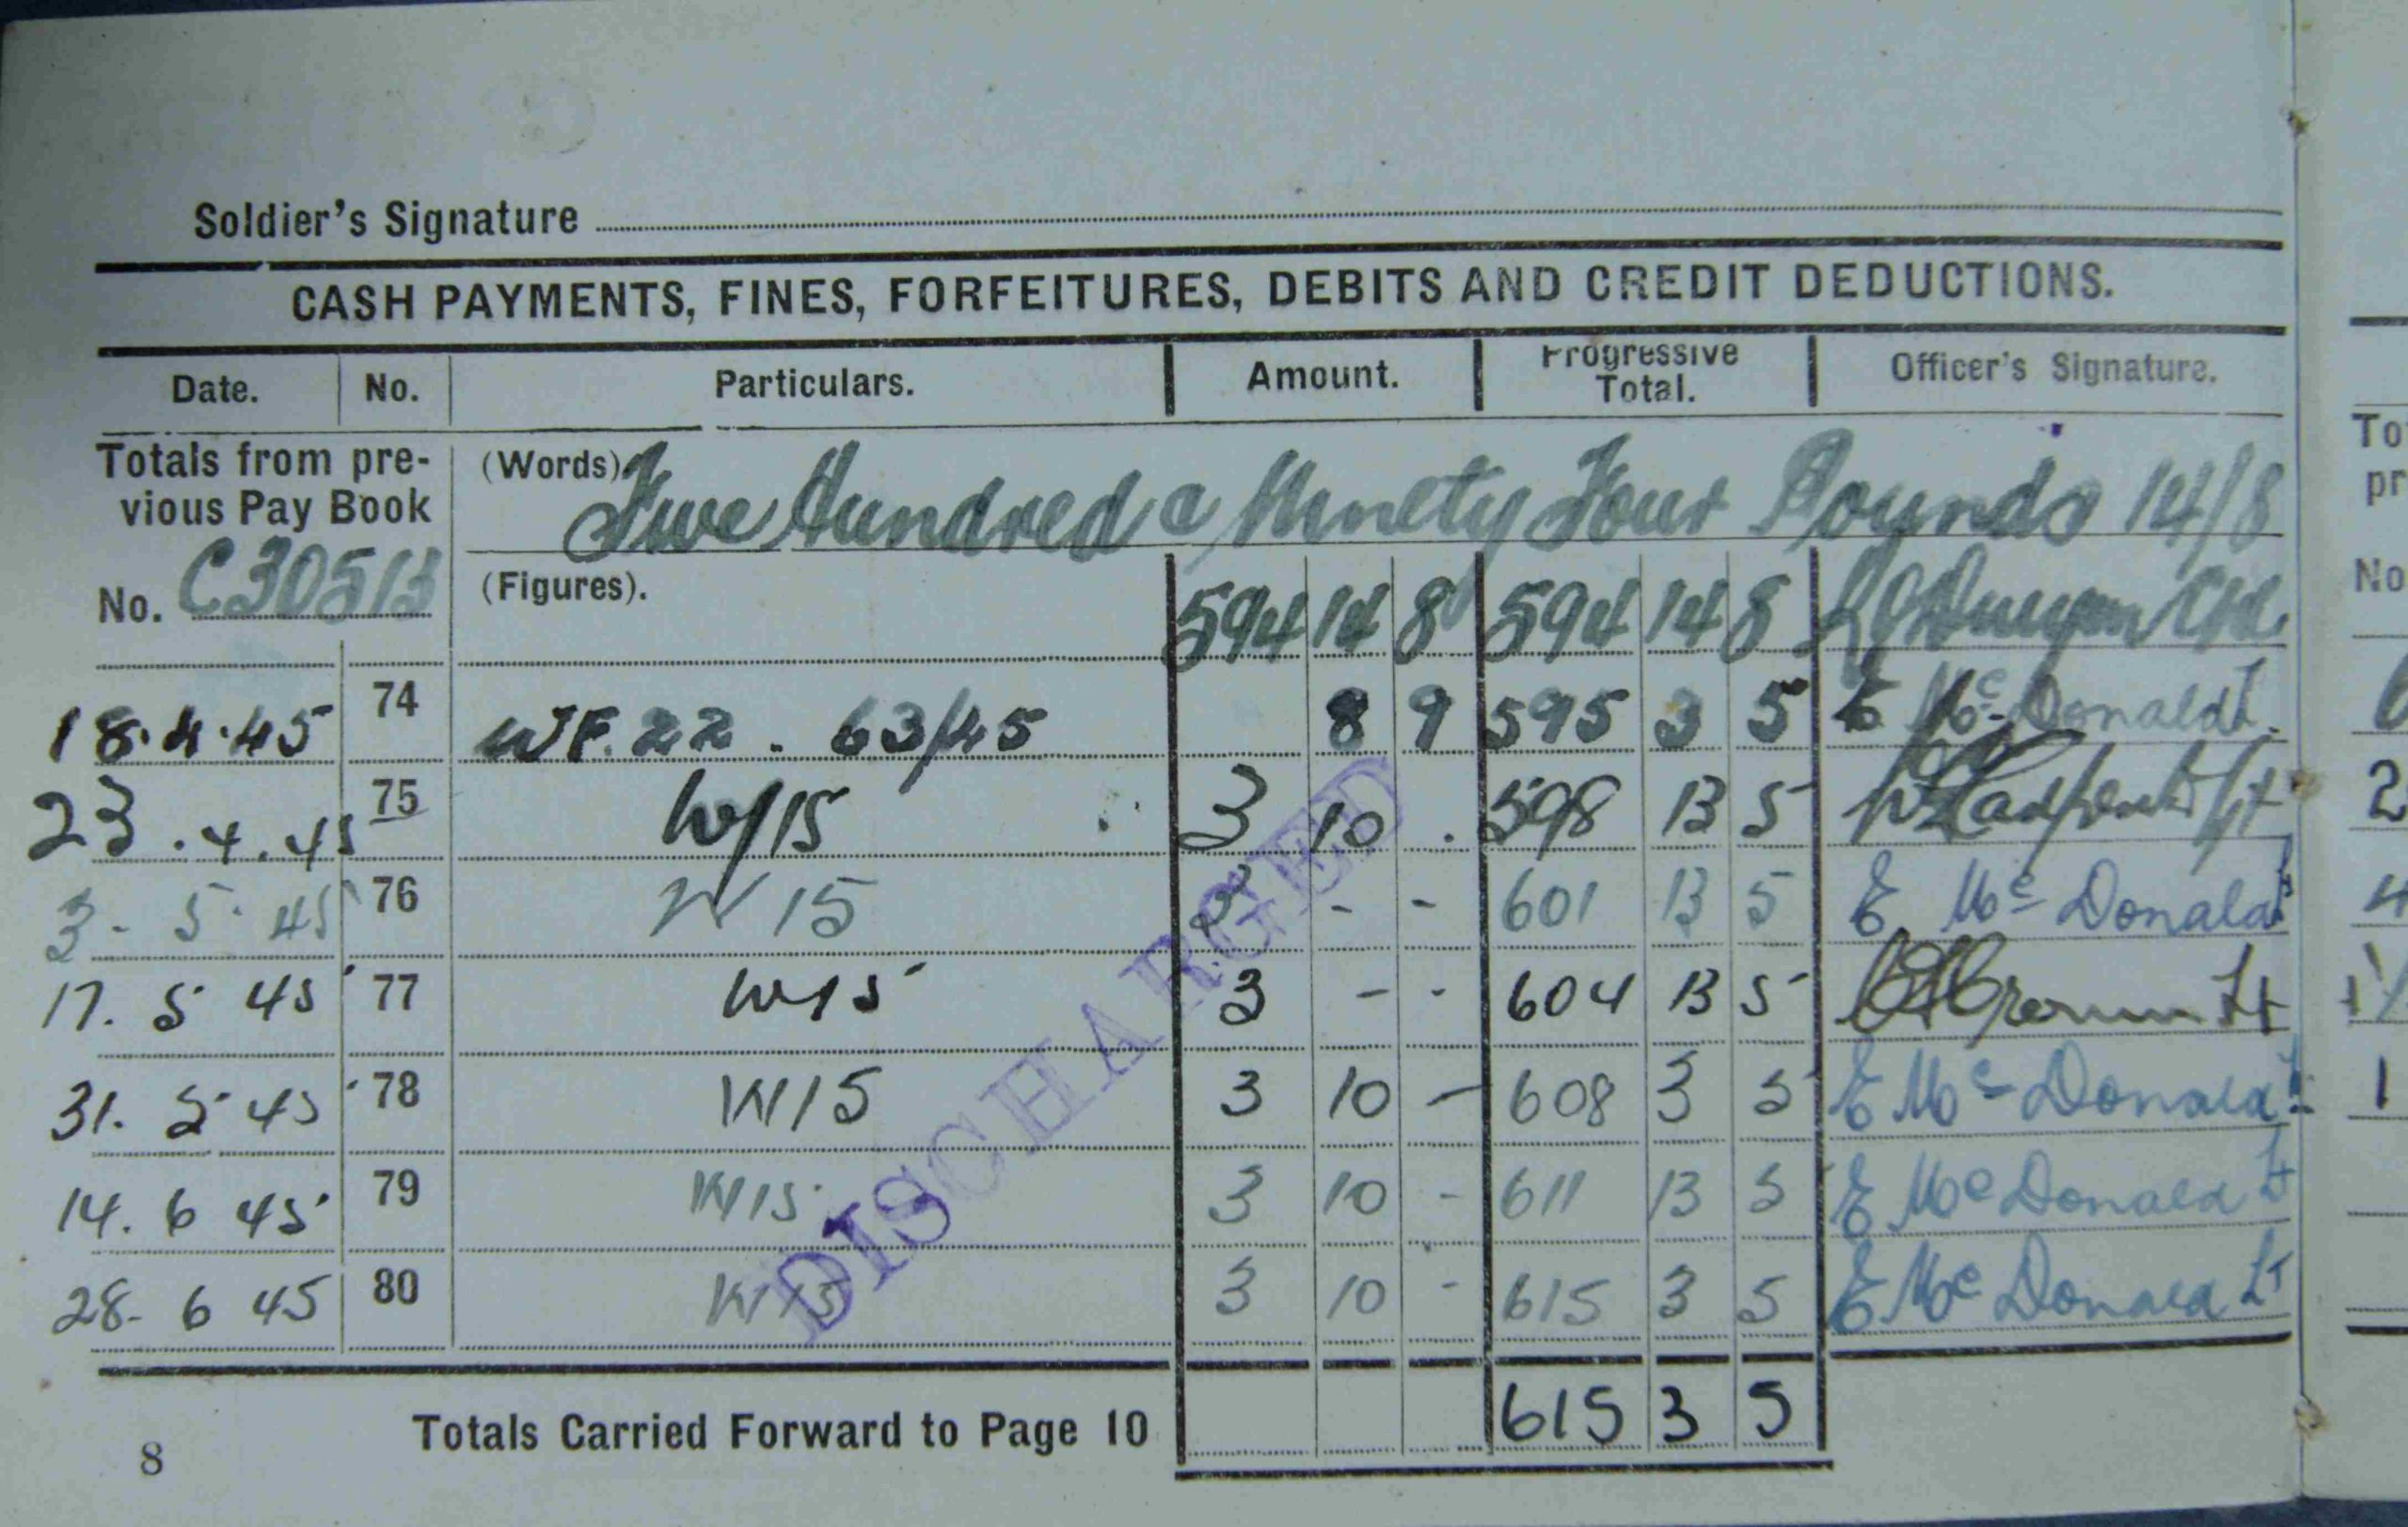 Soldier's Signature
CASH PAYMENTS, FINES, FORFEITURES, DEBITS AND CREDIT DEDUCTIONS.
Date. No. Particulars. Amount. Progressive Total. Officer's Signature.
Totals from pre-
vious Pay Book
No. C30513
(Words) Five Hundred & Ninety Four Pounds 14/8
(Figures). 594 14 8 594 14 8
18.4.45 74 WF.22. 63/45 8 9 595 3 5 E McDonald Lt.
23.4.45 75 W/15 3 10 . 598 13 5 Lt
3-5.45 76 W15 3 - - 601 13 5 E McDonald Lt
17. 5 45 77 W15 3 - - 604 13 5 Lt
31. 5 45 78 W15 3 10 - 608 3 5 E McDonald Lt
14. 6 45 79 W15 3 10 - 611 13 5 E McDonald Lt
28- 6 45 80 W15 3 10 - 615 3 5 E McDonald Lt
DISCHARGED
Totals Carried Forward to Page 10 615 3 5
8